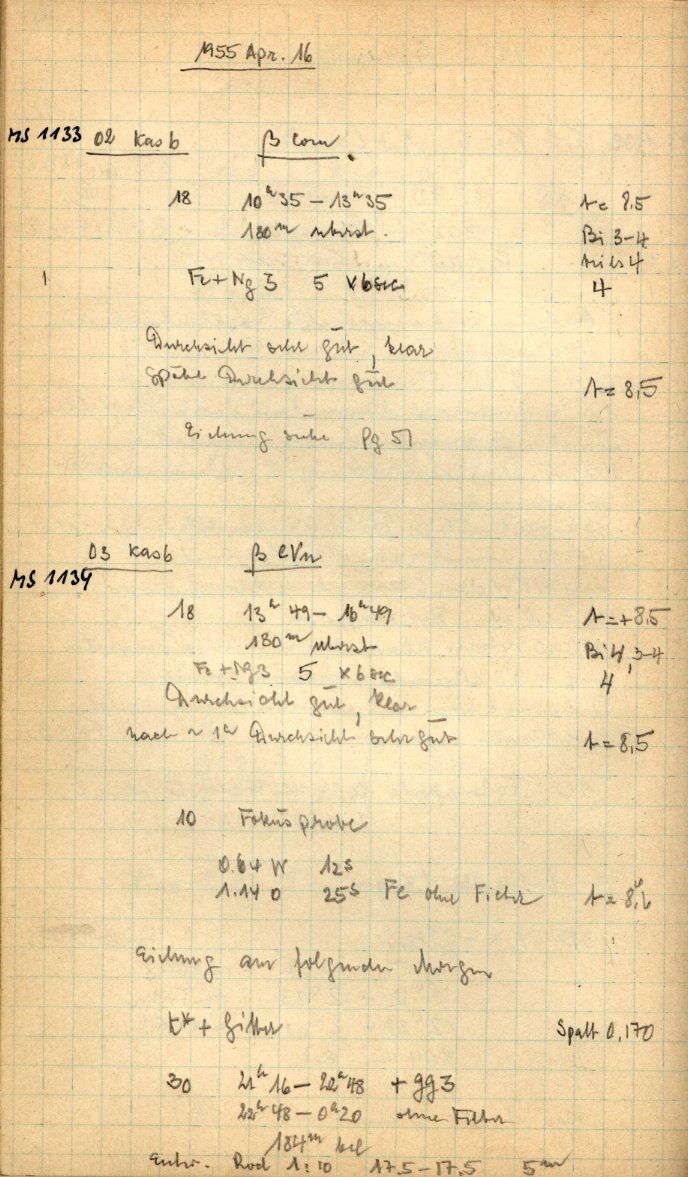 1955 Apr. 16
MS 1133 02 Kas b β Com
18 10ʰ35 – 13ʰ35 t = 8,5
180ᵐ Bi 3-4
4
1 Fe + Ng 3 5 x 6 sec 4
Durchsicht sehr gut, klar
Später Durchsicht gut t = 8,5
Eichung siehe pg 51
03 Kas b β CVn
MS 1134
18 13ʰ49 – 16ʰ49 t = +8,5
180ᵐ Bi 4, 3-4
Fe + Ng3 5 x 6 sec 4
Durchsicht gut, klar
nach ~ 1ʰ Durchsicht sehr gut t = 8,5
10 Fokusprobe
0.64 W 12s
1.14 0 25s Fe ohne Filter t = 8,6
Eichung am folgenden Morgen
K* + Gitter Spalt 0,170
30 21ʰ16 – 22ʰ48 + gg3
22ʰ48 – 0ʰ20 ohne Filter
184ᵐ bel
Entw. Rod 1:10 17.5 – 17.5 5ᵐ